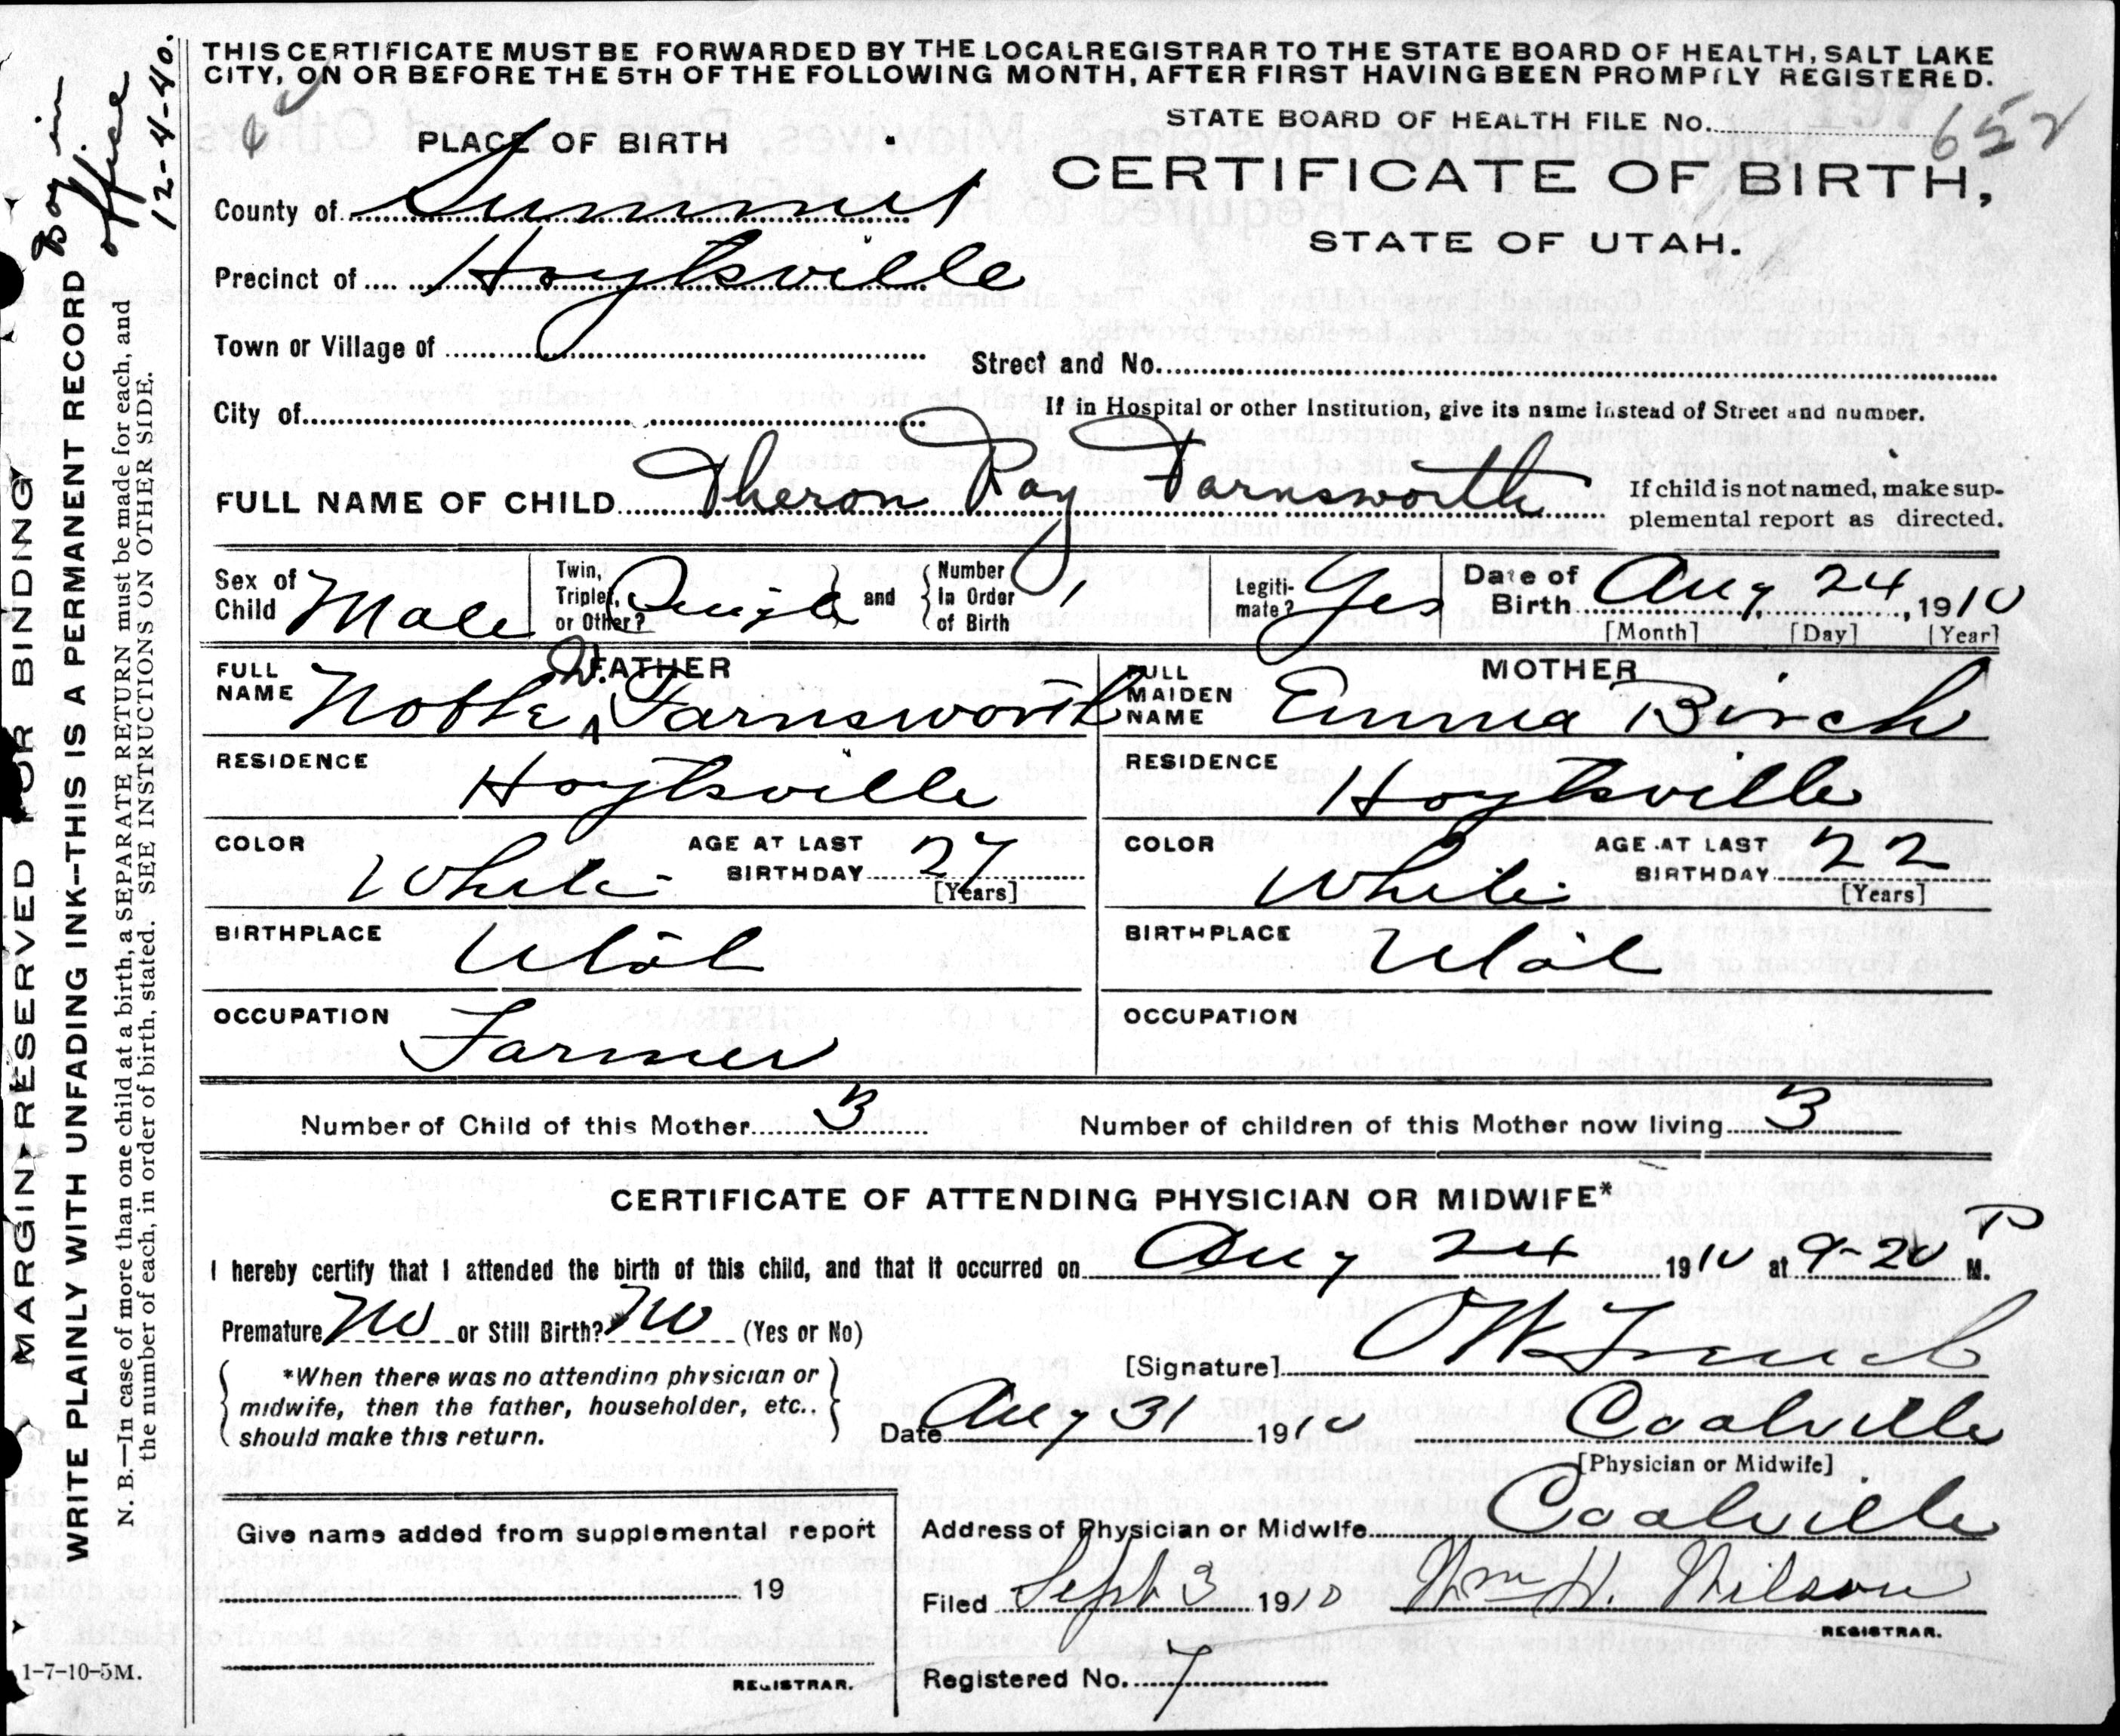 THIS CERTIFICATE MUST BE FORWARDED BY THE LOCAL REGISTRAR TO THE STATE BOARD OF HEALTH, SALT LAKE
CITY, ON OR BEFORE THE 5TH OF THE FOLLOWING MONTH, AFTER FIRST HAVING BEEN PROMPTLY REGISTERED.
STATE BOARD OF HEALTH FILE No. 652
PLACE OF BIRTH
CERTIFICATE OF BIRTH,
STATE OF UTAH.
County of Summit
Precinct of Hoytsville
Town or Village of
Street and No.
City of
If in Hospital or other Institution, give its name instead of Street and number.
FULL NAME OF CHILD Theron Ray Farnsworth
If child is not named, make sup-
plemental report as directed.
Sex of Child Male
Twin, Triplet, or Other? Single and Number In Order of Birth 1
Legiti-mate? Yes
Date of Birth Aug 24, 1910
[Month] [Day] [Year]
FATHER
FULL NAME Noble W. Farnsworth
RESIDENCE Hoytsville
COLOR White AGE AT LAST BIRTHDAY 27 [Years]
BIRTHPLACE Utah
OCCUPATION Farmer
MOTHER
FULL MAIDEN NAME Emma Birch
RESIDENCE Hoytsville
COLOR White AGE AT LAST BIRTHDAY 22 [Years]
BIRTHPLACE Utah
OCCUPATION
Number of Child of this Mother 3 Number of children of this Mother now living 3
CERTIFICATE OF ATTENDING PHYSICIAN OR MIDWIFE*
I hereby certify that I attended the birth of this child, and that it occurred on Aug 24 1910 at 9-20 P M.
Premature No or Still Birth? No (Yes or No)
*When there was no attending physician or
midwife, then the father, householder, etc.,
should make this return.
[Signature]
Date Aug 31 1910 Coalville
[Physician or Midwife]
Give name added from supplemental report
19
REGISTRAR.
Address of Physician or Midwife Coalville
Filed Sept 3 1910 Wm H. Wilson
REGISTRAR.
Registered No. 7
MARGIN RESERVED FOR BINDING
WRITE PLAINLY WITH UNFADING INK--THIS IS A PERMANENT RECORD
N. B.—In case of more than one child at a birth, a SEPARATE RETURN must be made for each, and
the number of each, in order of birth, stated. SEE INSTRUCTIONS ON OTHER SIDE.
Boy in
office
12-4-40.
1-7-10-5M.